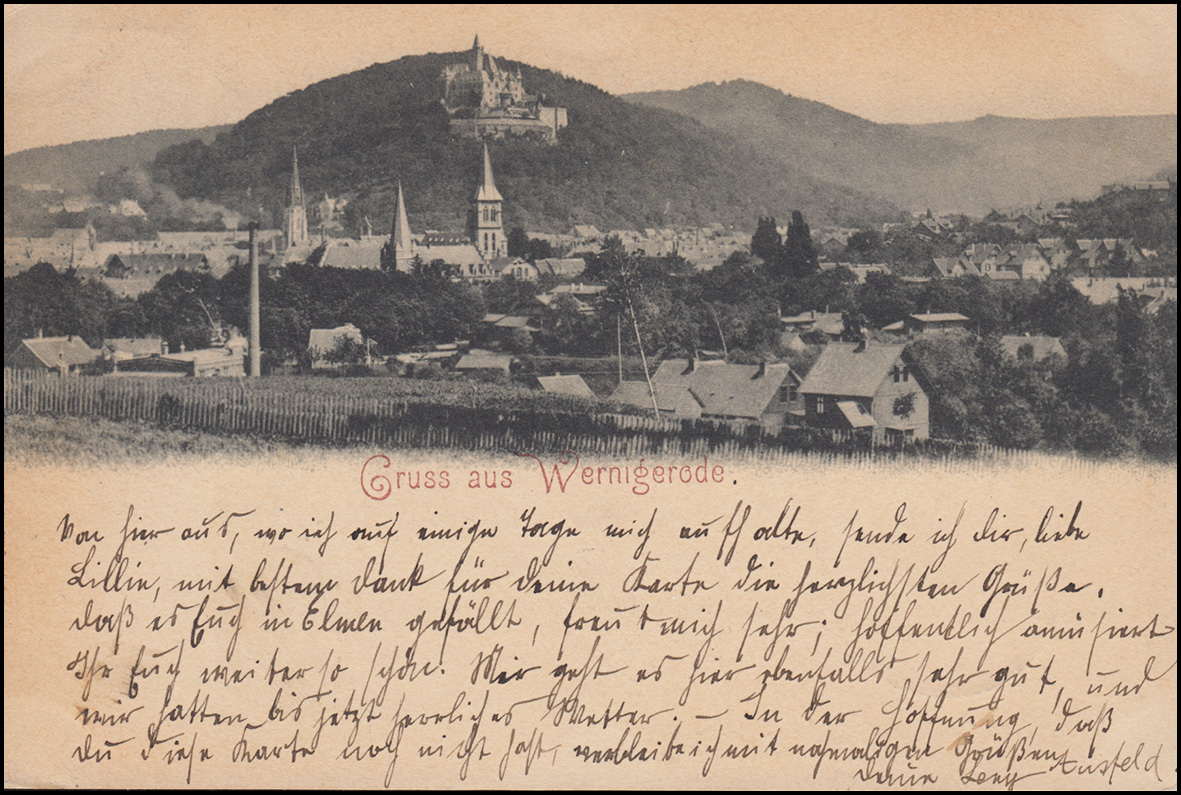 Gruss aus Wernigerode.
Von hier aus, wo ich auf einige Tage mich aufhalte, sende ich dir, liebe
Lillie, mit bestem Dank für deine Karte die herzlichsten Grüße.
daß es Euch in Elmen gefällt, freut mich sehr; hoffentlich amüsiert
Ihr Euch weiter so schön. Mir geht es hier ebenfalls sehr gut, und
wir hatten bis jetzt herrliches Wetter. – In der Hoffnung, daß
du diese Karte noch nicht hast, verbleibe ich mit nochmaligen Grüßen
deine Ausfeld